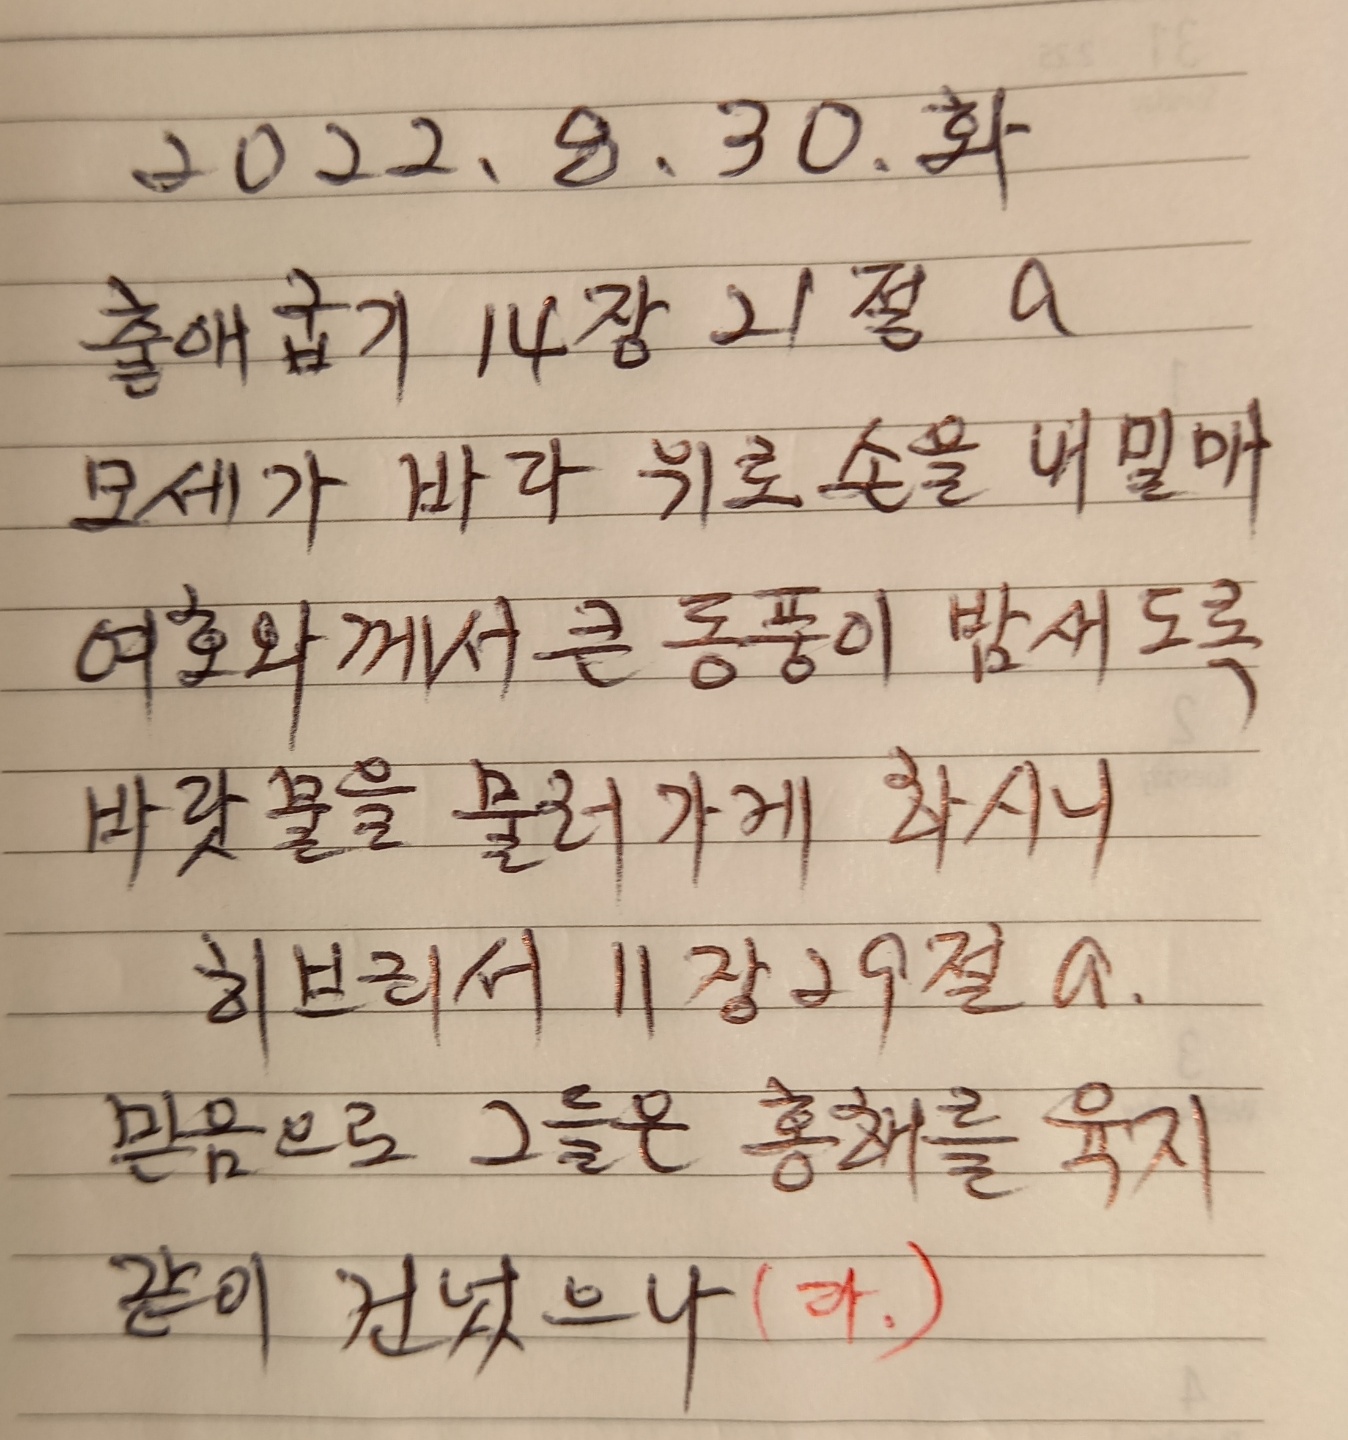 2022. 8. 30. 화
출애굽기 14장 21절 a
모세가 바다 위로 손을 내밀매
여호와께서 큰 동풍이 밤새도록
바닷물을 물러가게 하시니
히브리서 11장 29절 a.
믿음으로 그들은 홍해를 육지
같이 건넜으나 (다.)